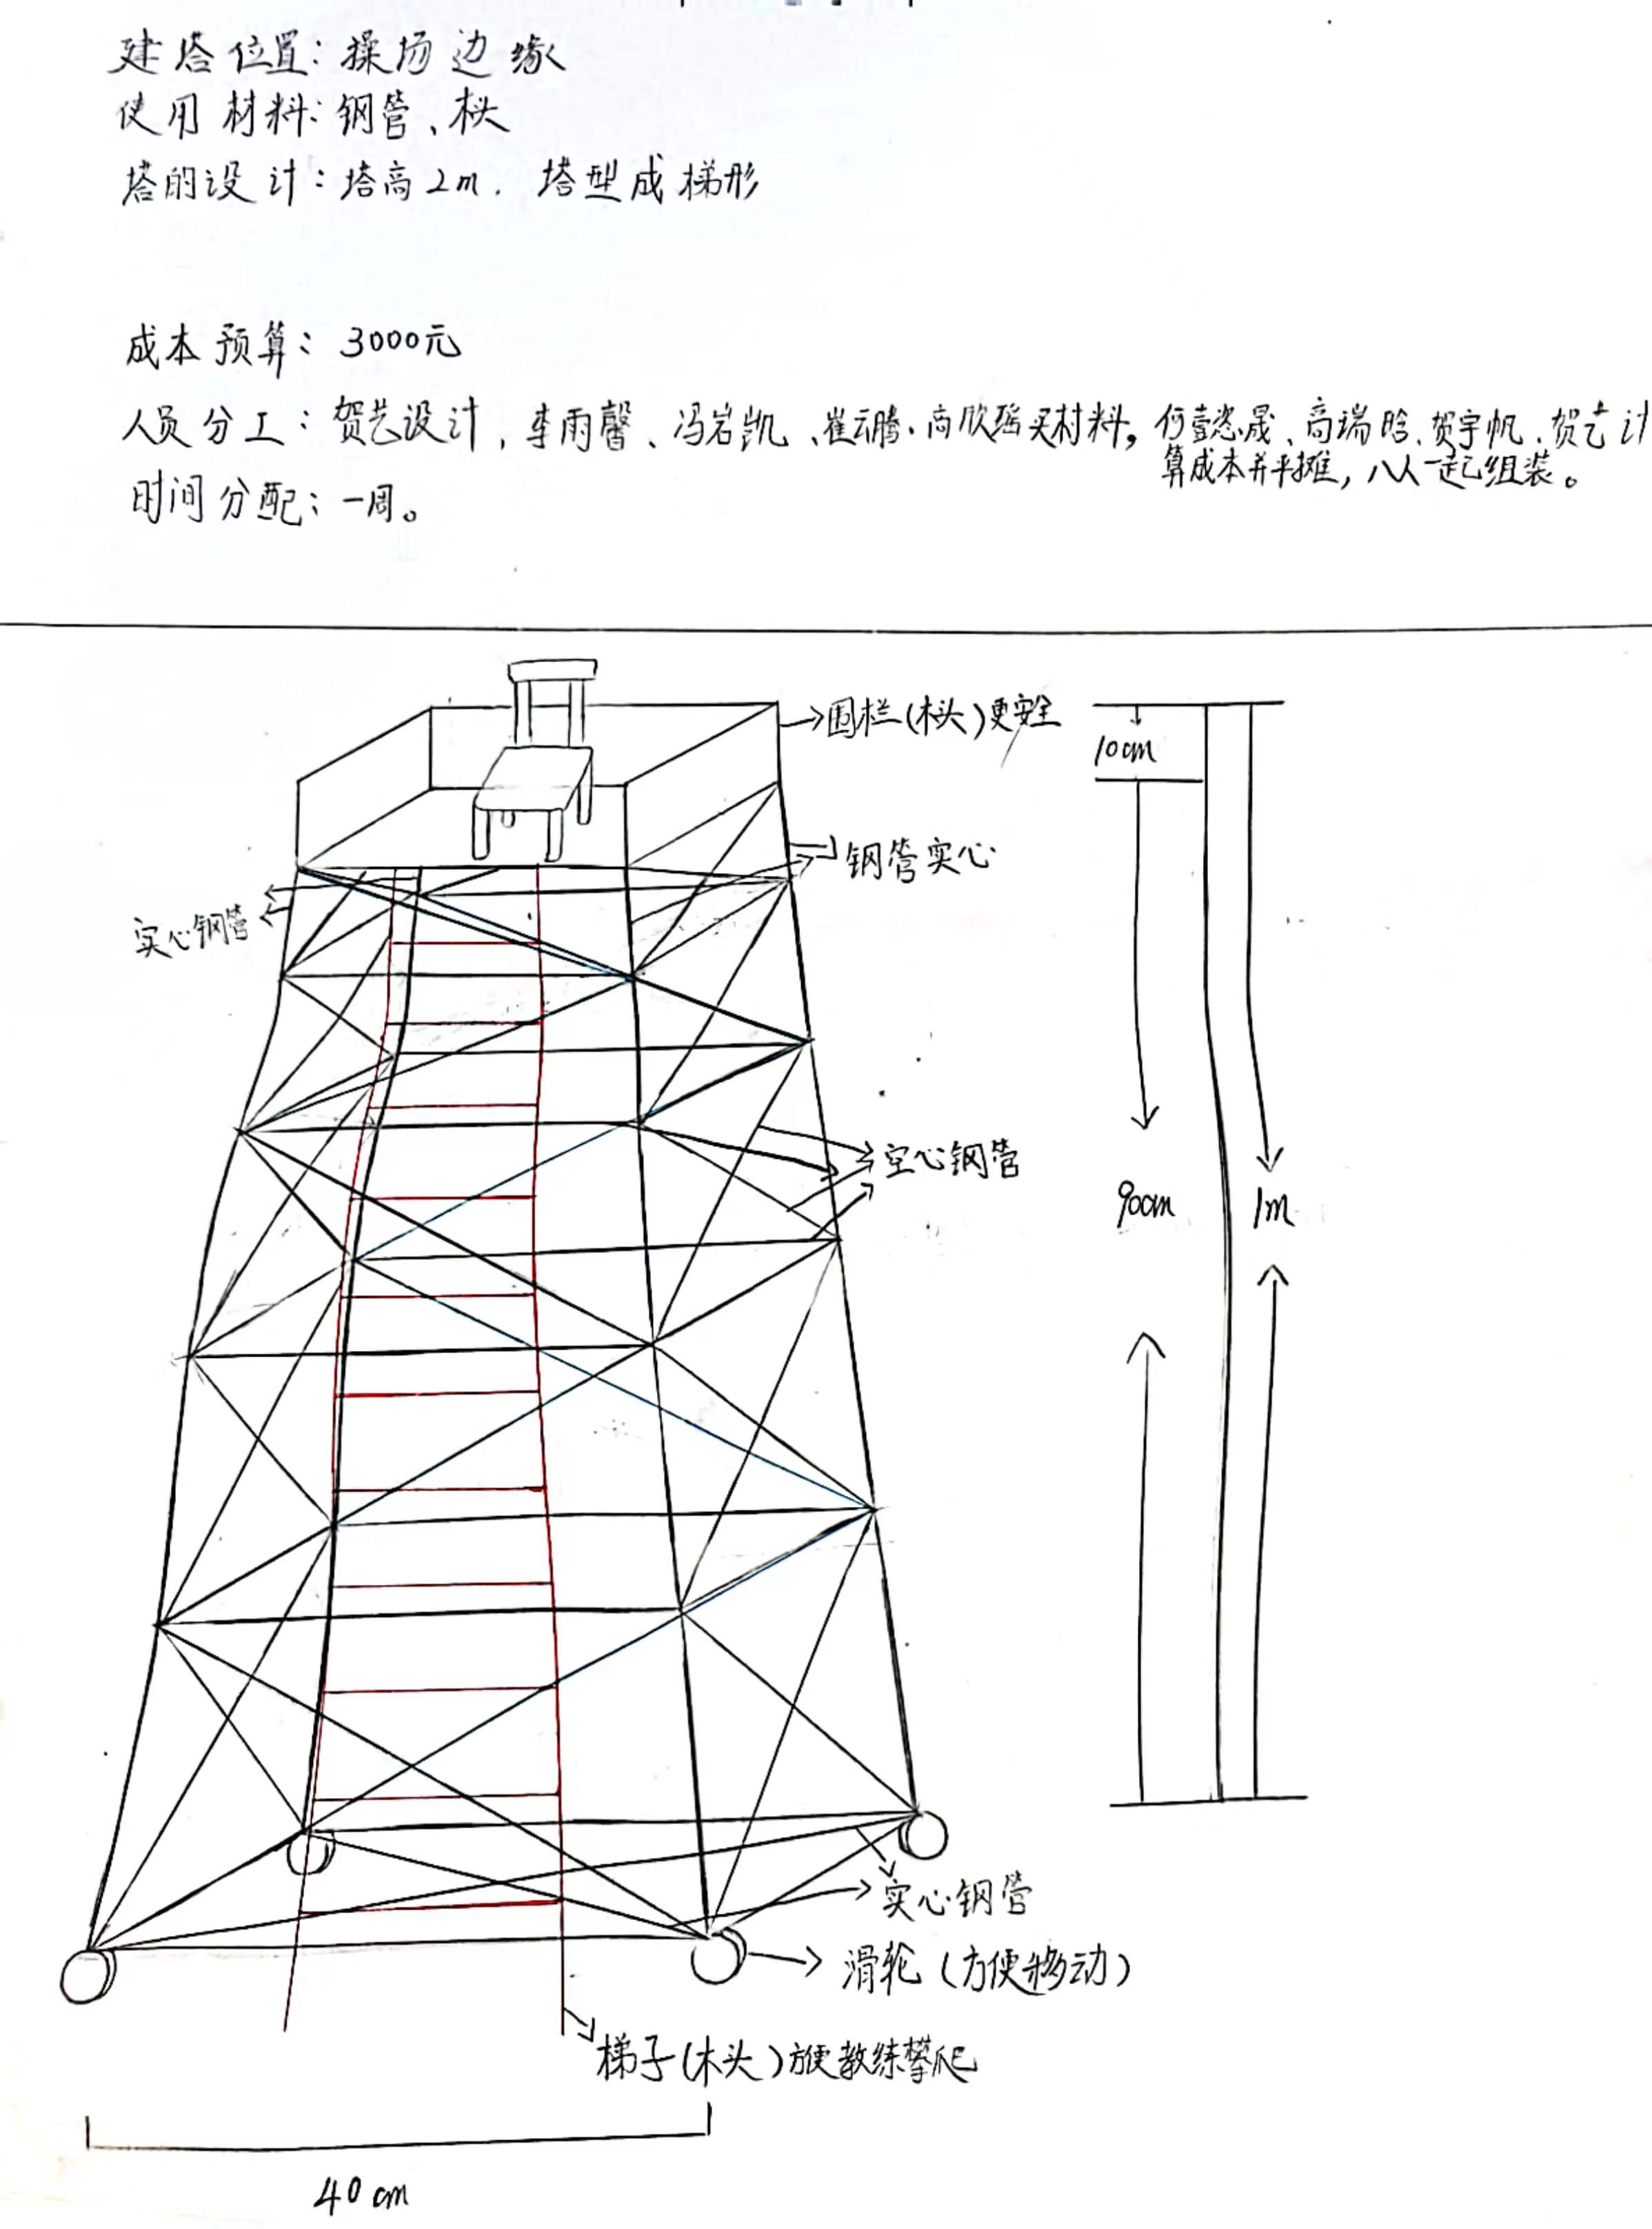 建塔位置：操场边缘
使用材料：钢管、木头
塔的设计：塔高2m．塔型成梯形
成本预算：3000元
人员分工：贺艺设计，李雨馨、冯岩凯、崔云腾、高欣瑶买材料，何壹恣晟、高瑞晗、贺宇帆、贺艺计
算成本并平摊，八人一起组装。
时间分配：一周。
围栏(木头)更安全
10cm
钢管实心
实心钢管
空心钢管
90cm
1m
实心钢管
滑轮(方便移动)
梯子(木头)方便教练攀爬
40cm